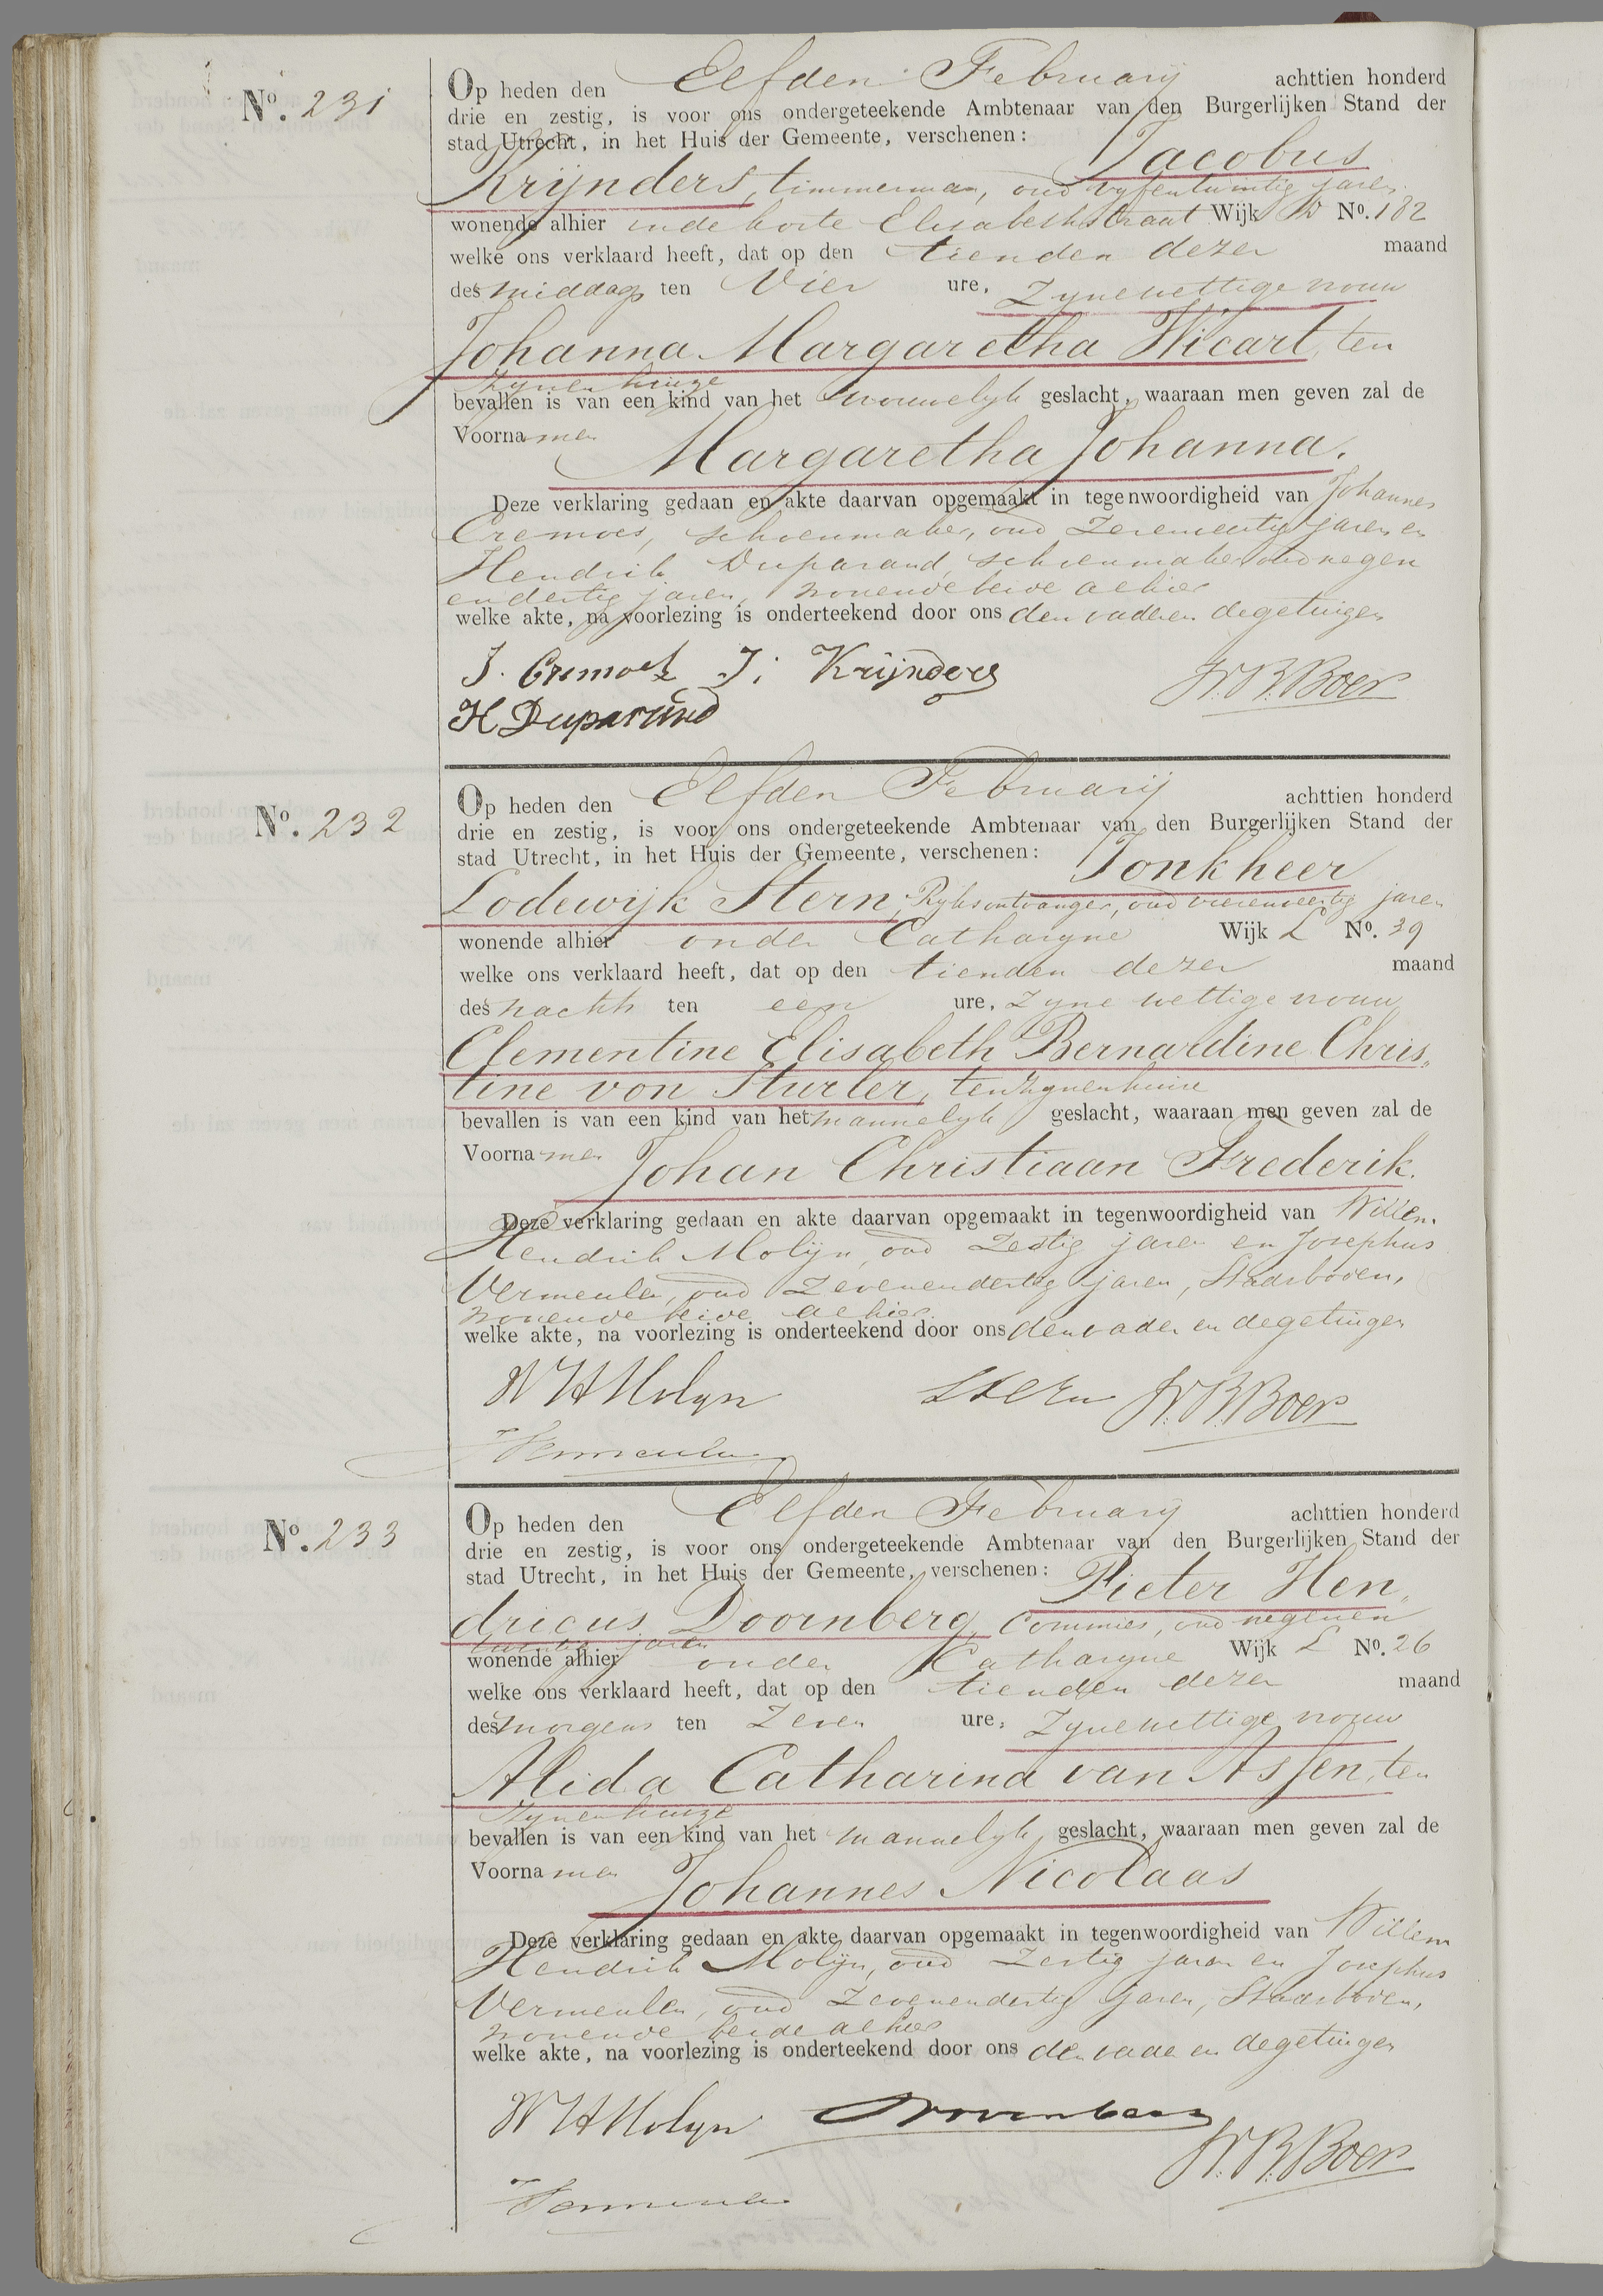 No. 231
Op heden den Elfden February achttien honderd
drie en zestig, is voor ons ondergeteekende Ambtenaar van den Burgerlijken Stand der
stad Utrecht, in het Huis der Gemeente, verschenen: Jacobus
Krijnders, timmerman, oud vyfentwintig jaren
wonende alhier in de korte Elisabethstraat Wijk No. 182
welke ons verklaard heeft, dat op den tienden dezer maand
des middags ten Vier ure, Zyne wettige vrouw
Johanna Margaretha Wicart, ten
Zynen huize
bevallen is van een kind van het vrouwelyk geslacht, waaraan men geven zal de
Voornamen Margaretha Johanna.
Deze verklaring gedaan en akte daarvan opgemaakt in tegenwoordigheid van Johannes
Cremoes, schoenmaker, oud jaren en
Hendrik Duparand, schoenmaker oud negen
endertig jaren, wonende beide alhier
welke akte, na voorlezing is onderteekend door ons den vader en de getuigen
J. Cremoes J. Krijnders W.B. Boer
H Duparand
No. 232
Op heden den Elfden February achttien honderd
drie en zestig, is voor ons ondergeteekende Ambtenaar van den Burgerlijken Stand der
stad Utrecht, in het Huis der Gemeente, verschenen: Jonkheer
Lodewijk Stern, Ryksontvanger, oud vierenveertig jaren
wonende alhier onder Catharyne Wijk L No. 39
welke ons verklaard heeft, dat op den tienden dezer maand
des nachts ten een ure, Zyne wettige vrouw
Clementine Elisabeth Bernardine Chris„
tine von Sturler, ten Zynen huize
bevallen is van een kind van het mannelyk geslacht, waaraan men geven zal de
Voornamen Johan Christiaan Frederik.
Deze verklaring gedaan en akte daarvan opgemaakt in tegenwoordigheid van Willem
Hendrik Molijn, oud Zestig jaren en Josephus
Vermeulen, oud Zevenendertig jaren, Stadsboden,
wonende beide alhier
welke akte, na voorlezing is onderteekend door ons den vader en de getuigen
W H Molyn LStern W.B. Boer
Vermeulen
No. 233
Op heden den Elfden February achttien honderd
drie en zestig, is voor ons ondergeteekende Ambtenaar van den Burgerlijken Stand der
stad Utrecht, in het Huis der Gemeente, verschenen: Pieter Hen„
dricus Doornberg, Commies, oud negenen
twintig jaren
wonende alhier onder Catharyne Wijk L No. 26
welke ons verklaard heeft, dat op den tienden dezer maand
des morgens ten Zeven ure, Zyne wettige vrouw
Alida Catharina van Assen, ten
Zynen huize
bevallen is van een kind van het mannelyk geslacht, waaraan men geven zal de
Voornamen Johannes Nicolaas
Deze verklaring gedaan en akte daarvan opgemaakt in tegenwoordigheid van Willem
Hendrik Molijn, oud Zestig jaren en Josephus
Vermeulen, oud Zevenendertig jaren, Stadsboden,
wonende beide alhier
welke akte, na voorlezing is onderteekend door ons den vader en de getuigen
W H Molyn Doornberg W.B. Boer
Vermeulen